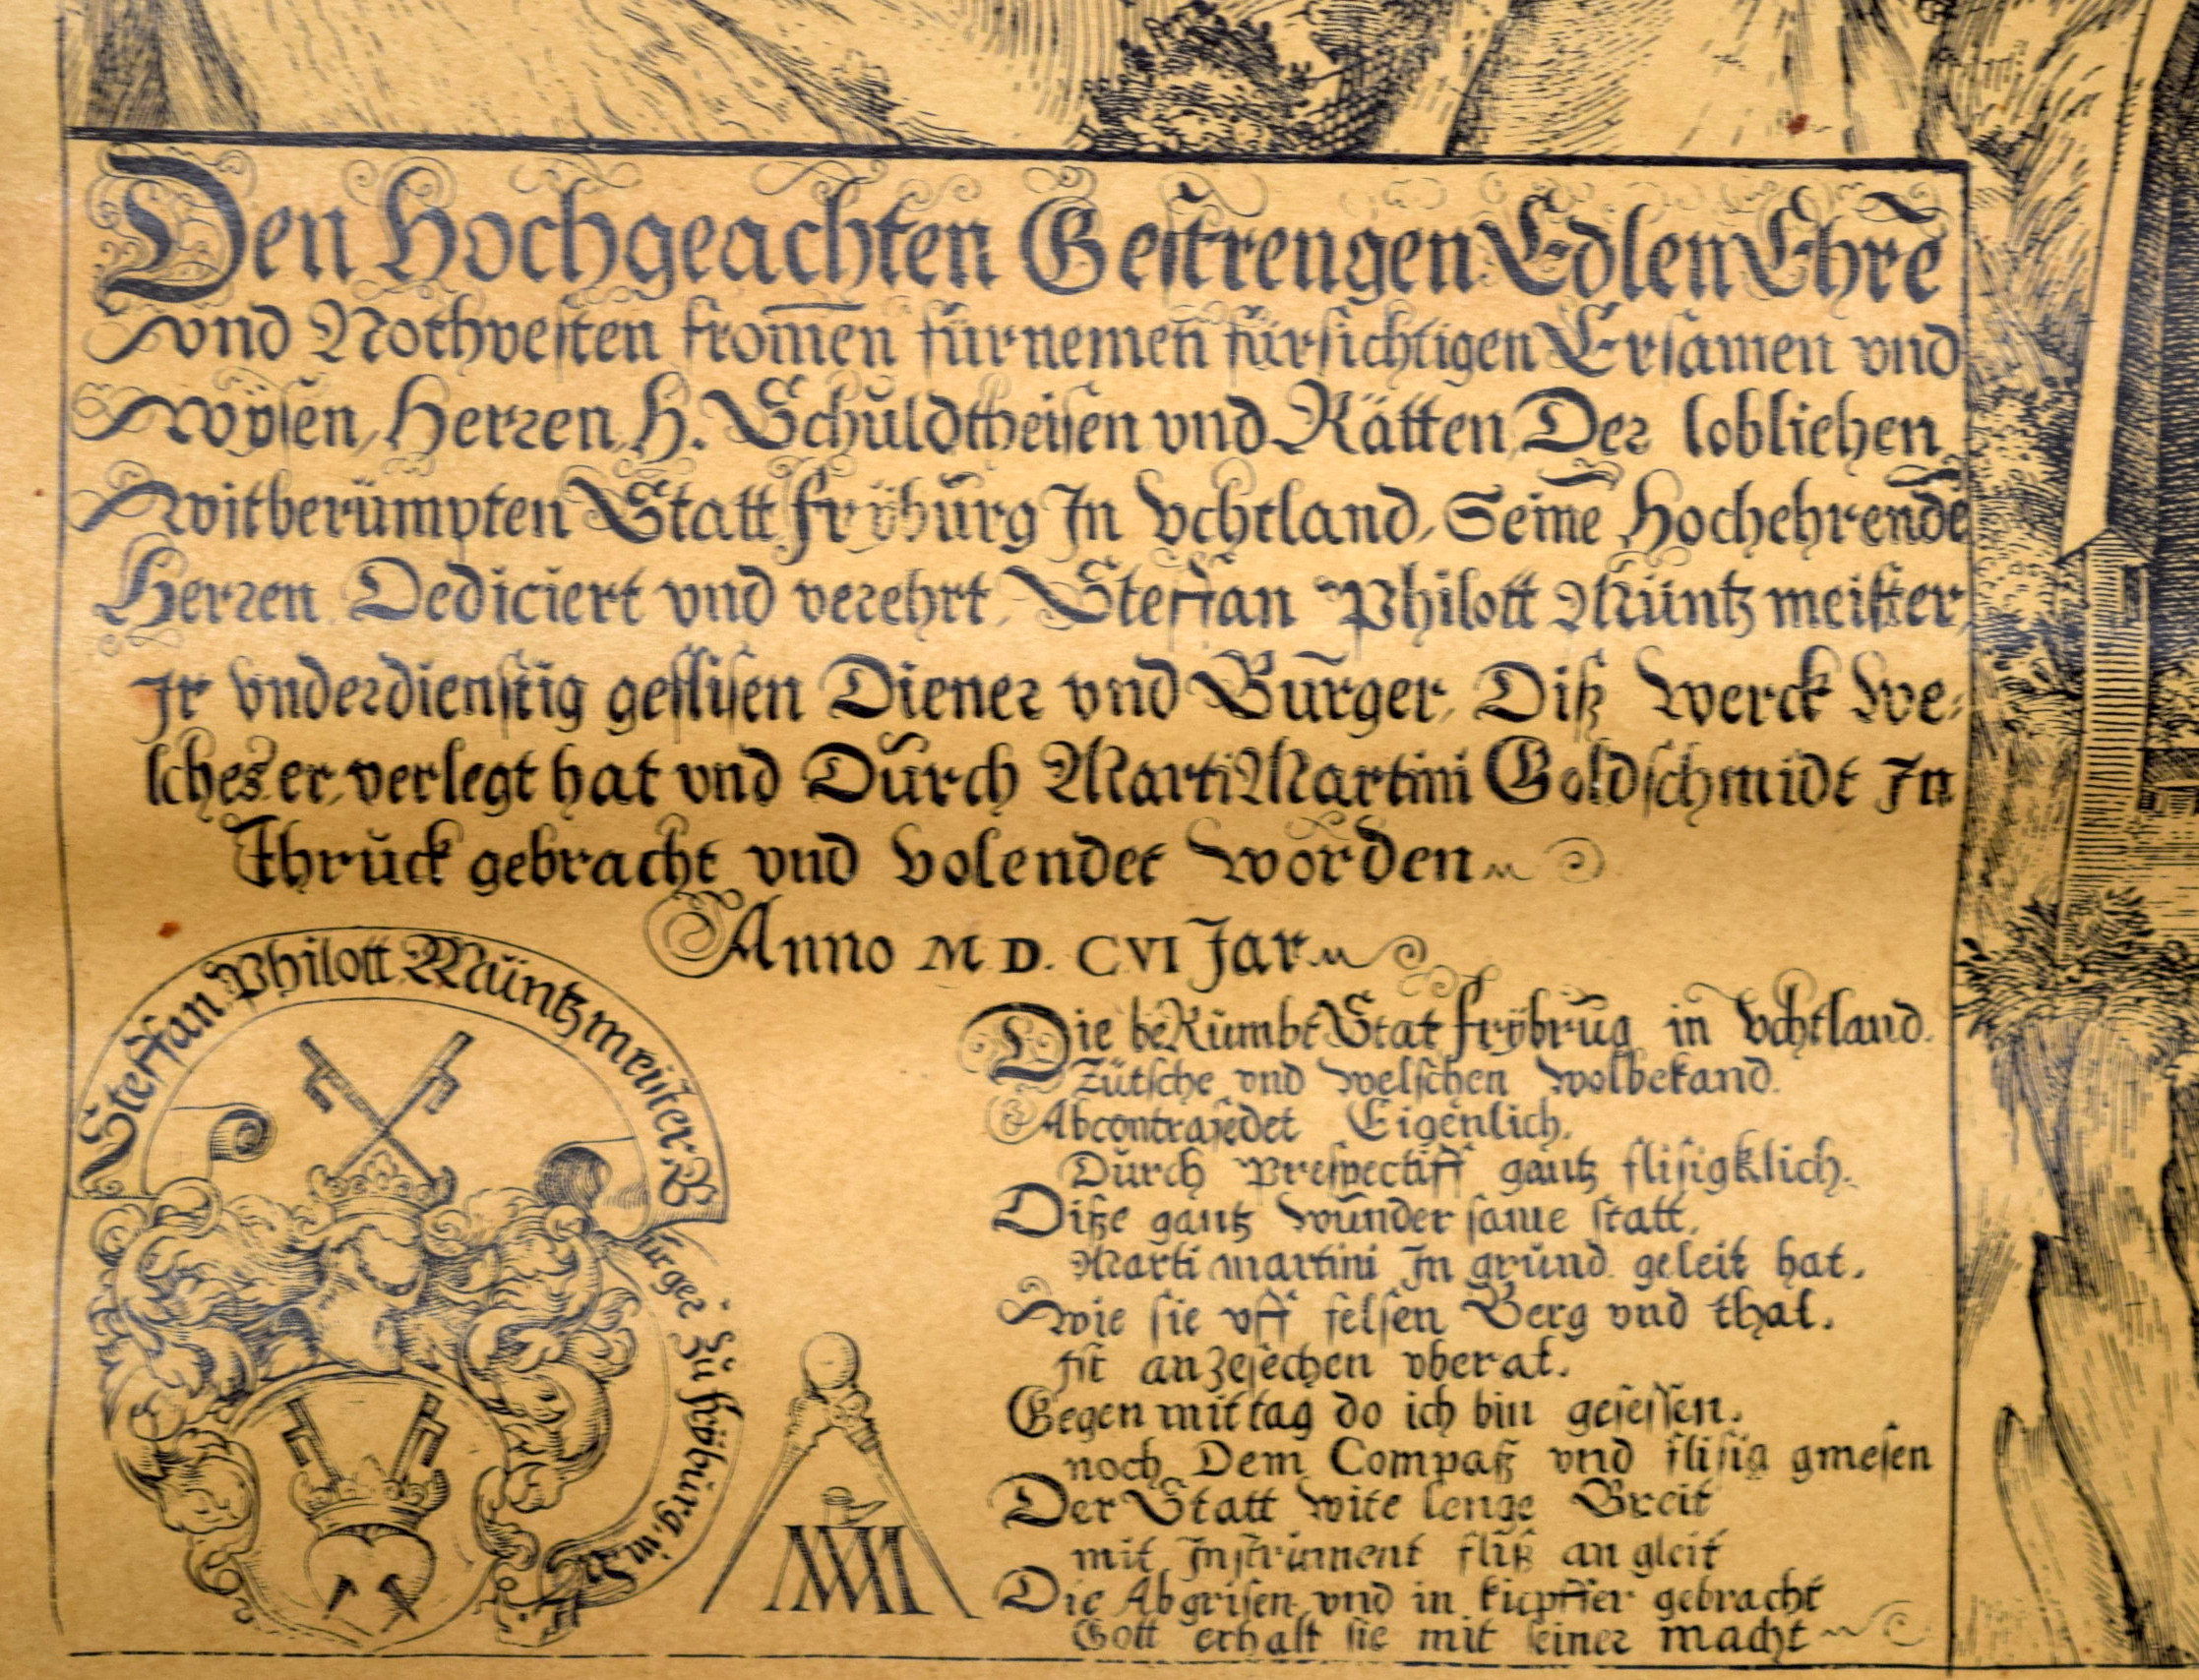 Den Hochgeachten Gestrengen Edlen Ehrē
vnd Nothvesten from̄en fürnemen fürsichtigen Ersamen vnd
wÿsen, Herren, H. Schuldtheisen vnd Rätten, Der loblichen
witberümpten Statt frÿburg In Vchtland, Seine Hochehrendē
Herren Dediciert vnd verehrt, Steffan Philott Müntzmeister,
Ir vnderdienstig geflisen Diener vnd Burger, Diß Werck We-
lches er, verlegt hat vnd Durch Marti Martini Goldschmidt In
Thruck gebracht vnd Volendet worden
Anno M D. CVI Jar
Steffan Philott Müntzmeister B
urger Zu frÿburg, in V
MM
Die beRümbt Stat frÿbrug in Vchtland.
Zütsche vnd Welschen wolbekand.
Abcontrafedet Eigenlich.
Durch Prespectiff gantz flisigklich.
Diße gantz wunder same statt.
Marti martini In grund geleit hat.
Wie sie vff felsen Berg vnd thal.
ist anzesechen vberal.
Gegen mittag do ich bin gesessen.
noch Dem Compaß vnd flisig gmesen
Der Statt wite lenge Breit
mit Instrument fliß an gleit
Die Abgrisen vnd in kupffer gebracht
Gott erhalt sie mit seiner macht